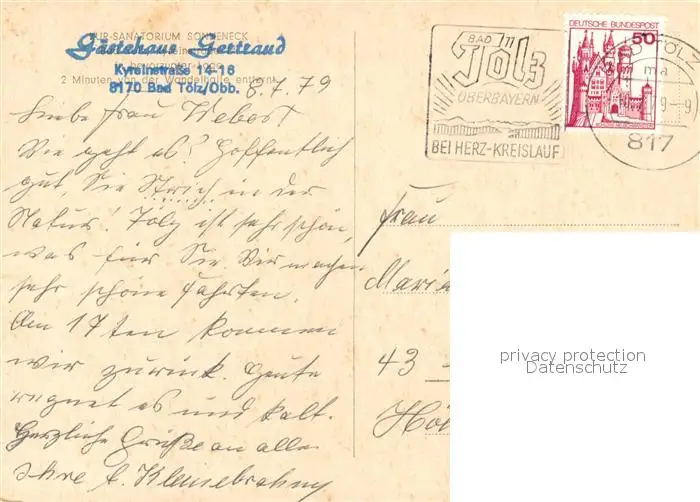 KUR-SANATORIUM SONNENECK
Gästehaus Gertraud
bevorzugter Lage
Kyreinstraße 14-16
2 Minuten von der Wandelhalle entfernt
8170 Bad Tölz/Obb.
8.7.79
Liebe Frau Weber!
Wie geht es? Hoffentlich
gut, Sie in der
Natur! Tölz ist sehr schön,
was für Sie Wir machen
sehr schöne Fahrten.
Am 17ten kommen
wir zurück. Heute
regnet es und kalt.
Herzliche Grüße an alle
Ihre
BAD TÖLZ
OBERBAYERN
BEI HERZ-KREISLAUF
DEUTSCHE BUNDESPOST
50
BAD TÖLZ
ma
9-9
817
Frau
43
privacy protection
Datenschutz